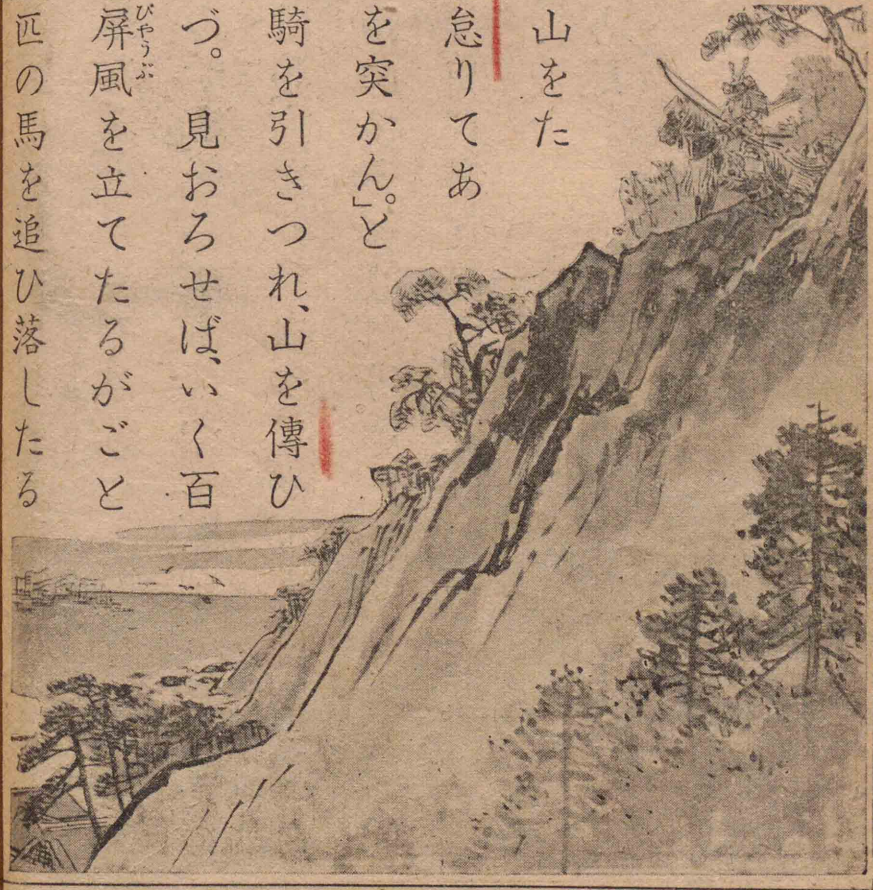 山をた
怠りてあ
を突かん。」と
騎を引きつれ、山を傳ひ
づ。見おろせば、いく百
屏風を立てたるがごと
びやうぶ
匹の馬を追ひ落したる